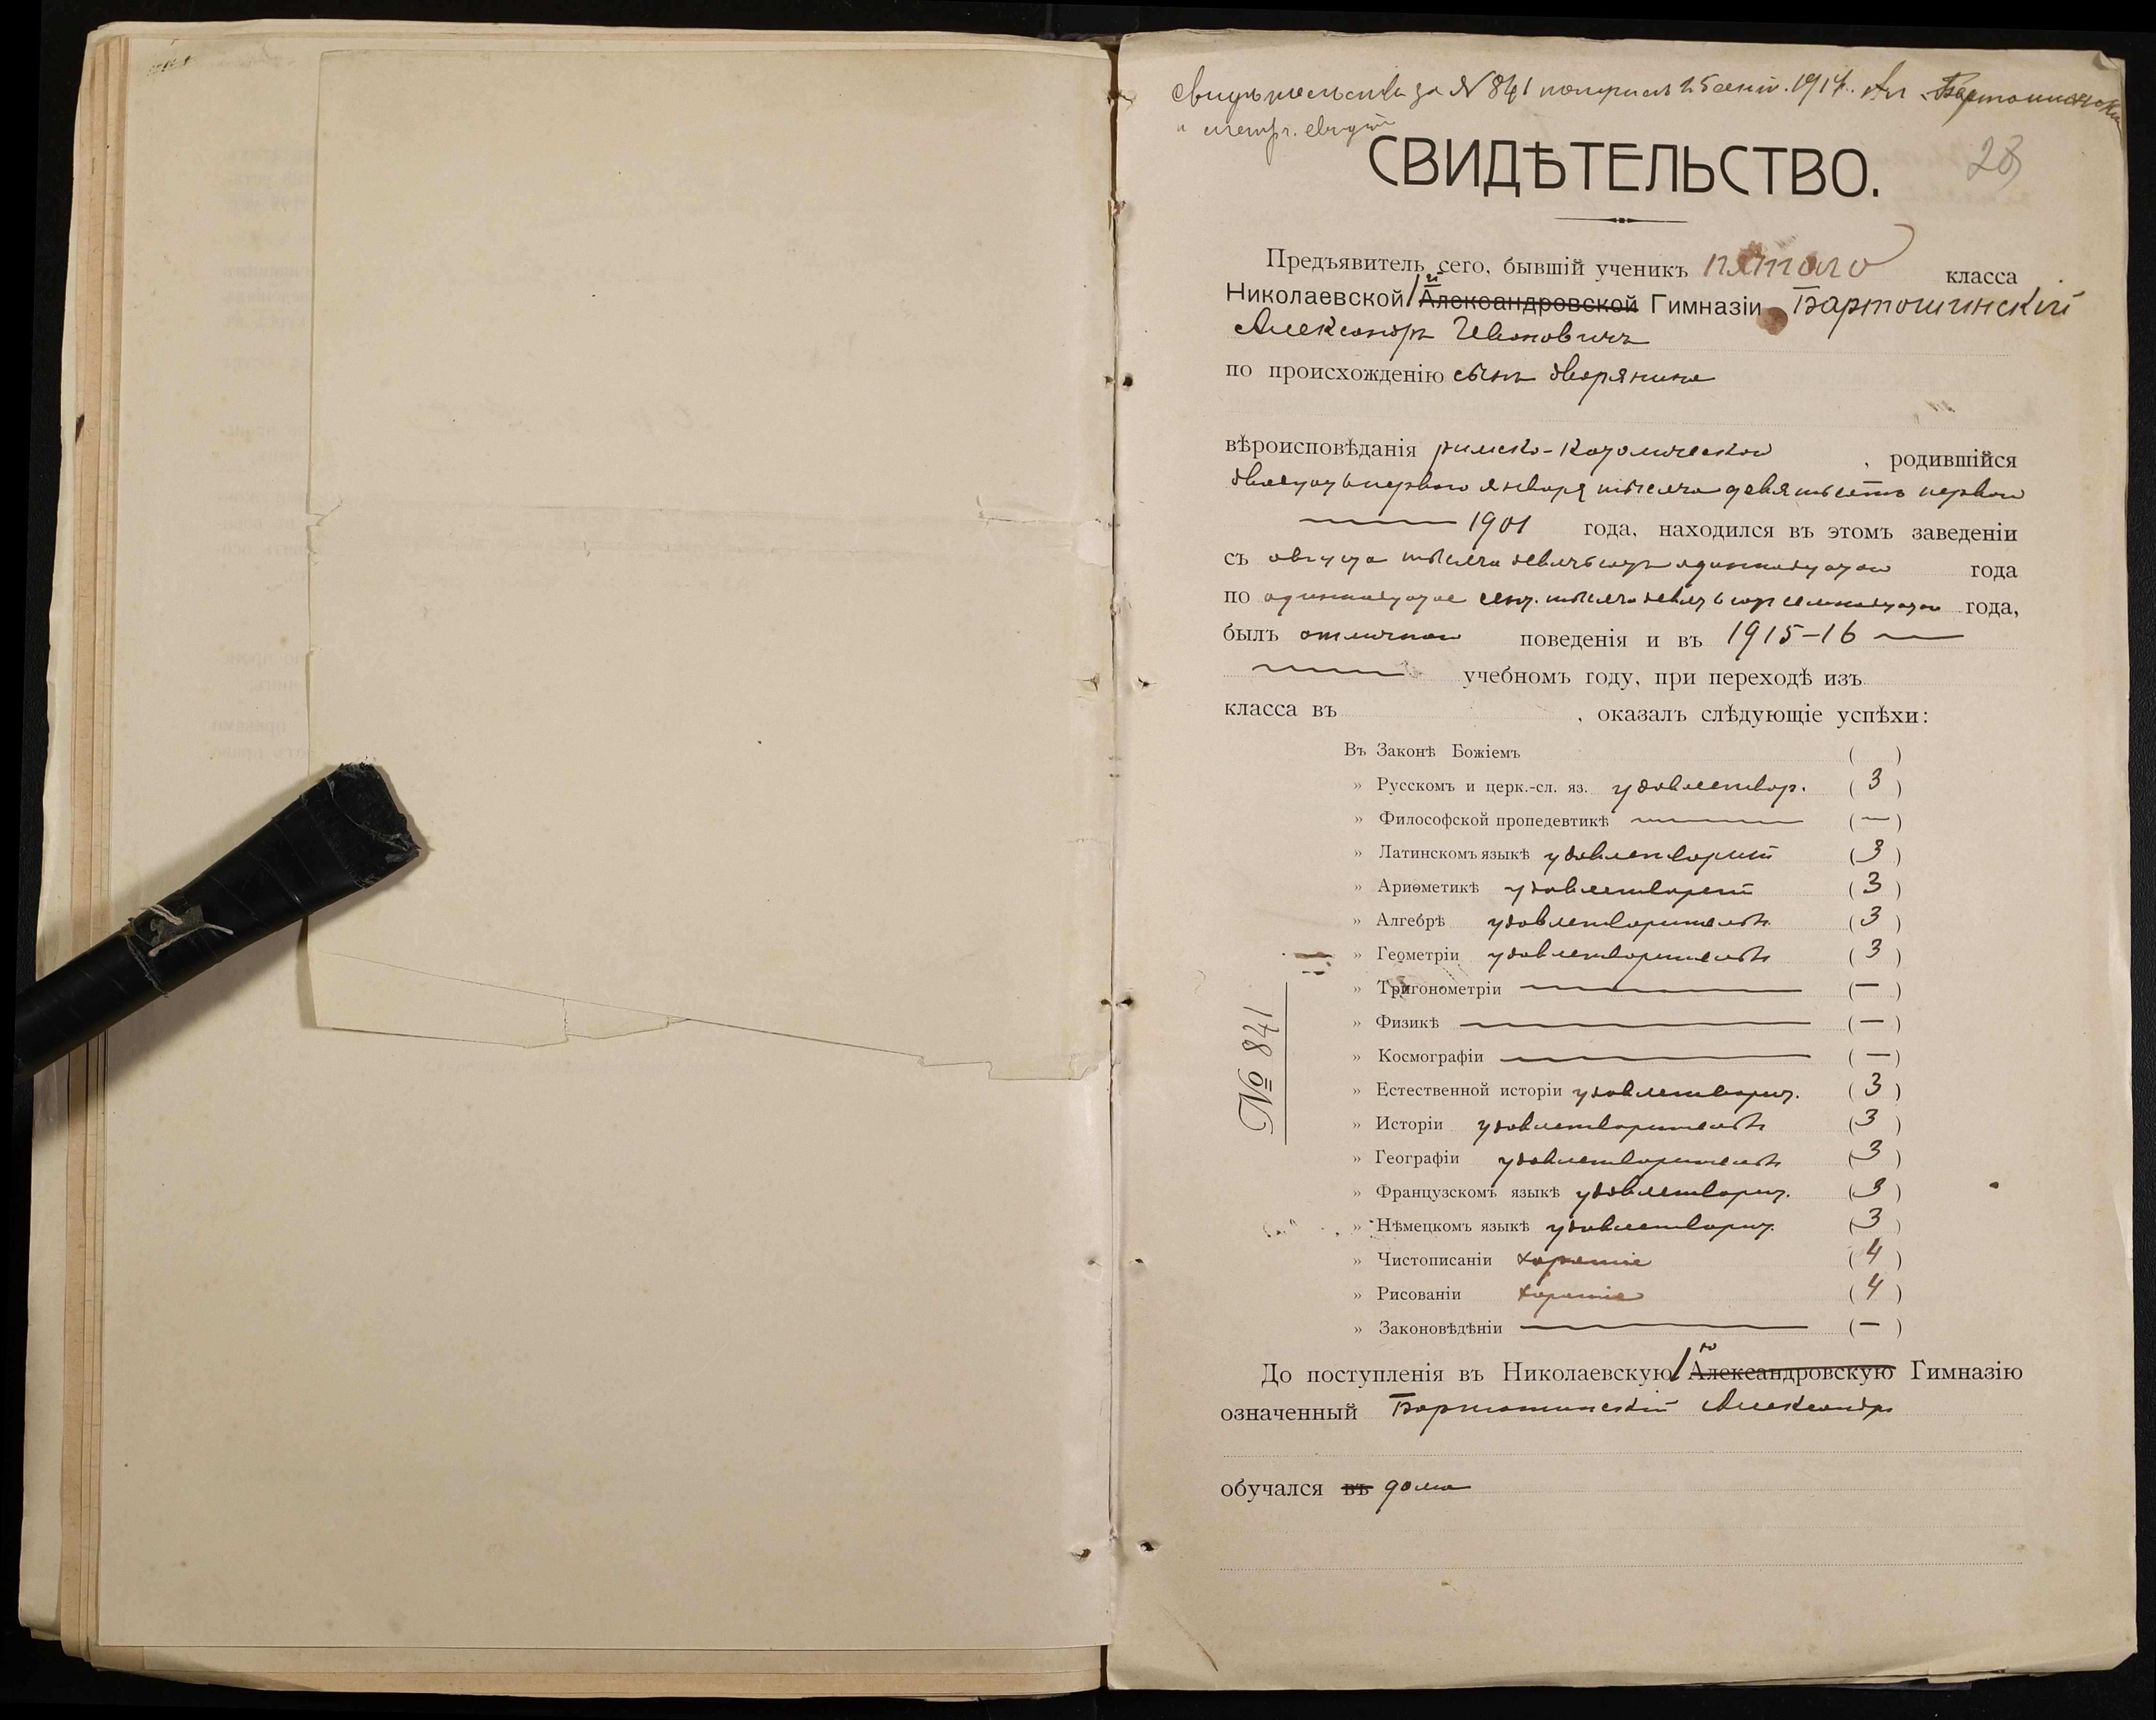 Свидѣтельство за N 841 получилъ 25 сент. 1917. Ал. Бартошинскій
и метр. свидѣт.
28
СВИДѢТЕЛЬСТВО.
Предъявитель сего, бывшій ученикъ пятого класса
Николаевской 1й Александровской Гимназіи Бартошинскій
Александръ Ивановичъ
по происхожденію сынъ дворянина
вѣроисповѣданія римско-католическаго, родившійся
двадцать перваго января тысяча девятьсотъ перваго
1901 года, находился въ этомъ заведеніи
съ августа тысяча девятьсотъ одиннадцатаго года
по одиннадцатое сент. тысяча девятьсотъ семнадцатаго года,
былъ отличнаго поведенія и въ 1915–16 —
учебномъ году, при переходѣ изъ
класса въ , оказалъ слѣдующіе успѣхи:
Въ Законѣ Божіемъ ( )
» Русскомъ и церк.-сл. яз. удовлетвор. (3)
» Философской пропедевтикѣ — (—)
» Латинскомъ языкѣ удовлетворит (3)
» Ариѳметикѣ удовлетворит (3)
» Алгебрѣ удовлетворительн (3)
» Геометріи удовлетворительн (3)
» Тригонометріи — (—)
» Физикѣ — (—)
» Космографіи — (—)
» Естественной исторіи удовлетворит. (3)
» Исторіи удовлетворительн (3)
» Географіи удовлетворительн (3)
» Французскомъ языкѣ удовлетворит. (3)
» Нѣмецкомъ языкѣ удовлетворит. (3)
» Чистописаніи хорошіе (4)
» Рисованіи хорошіе (4)
» Законовѣдѣніи — (—)
№ 841
До поступленія въ Николаевскую 1ю Александровскую Гимназію
означенный Бартошинскій Александръ
обучался въ дома